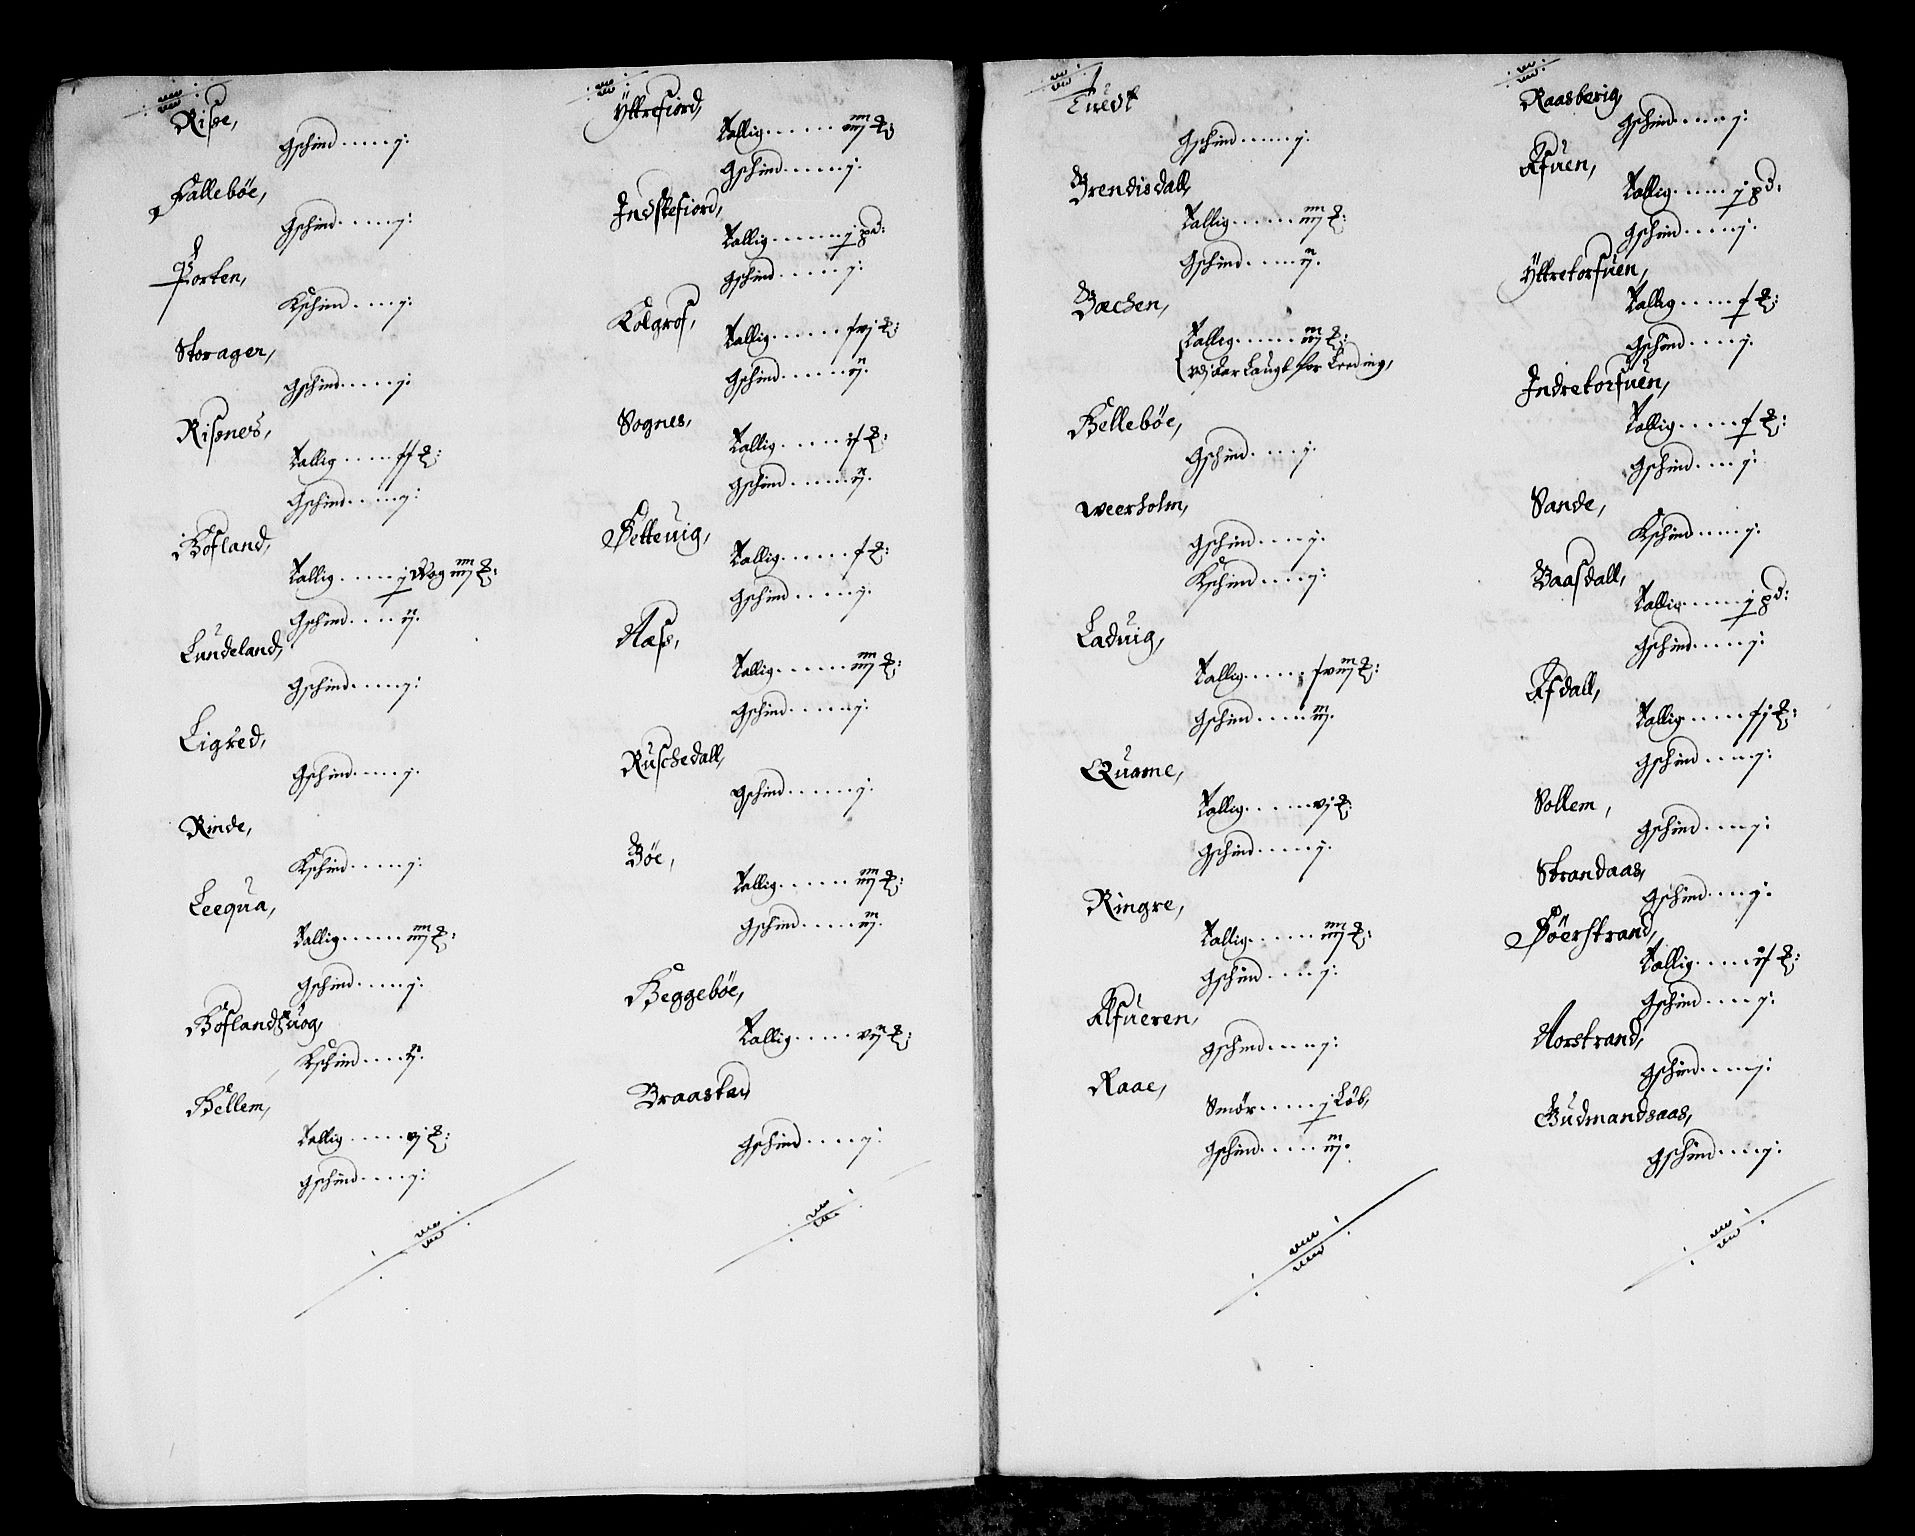 Risøe,
Gschind ..... j:
Hallebøe,
Gschind ..... j:
Porten,
Kschind ..... j:
Storager,
Gschind ..... j:
Risenes,
Tallig
Gschind ..... j:
Hofland,
Tallig ..... j Wog iiij ℔:
Gschind ..... ij.
Lundeland,
Gschind ..... j:
Ligred,
Gschind ..... j:
Rinde,
Kschind ..... j:
Leequa,
Tallig ...... iiij ℔:
Gschind ..... j:
Hoflandzuog,
Kschind ..... ij.
Hellem,
Tallig ..... vj ℔:
Gschind ..... j:
Yttrefiord,
Tallig ...... iiij ℔:
Gschind ...... j:
Indstefiord,
Tallig ....... j pd:
Gschind ...... j:
Kolgrof,
Tallig ....... xvj ℔:
Gschind ...... ij.
Sognes,
Tallig ...... ix ℔:
Gschind ...... ij.
Settevig,
Tallig ...... x ℔:
Gschind ...... j:
Næss,
Tallig ...... iiij ℔:
Gschind ...... j:
Ruschedall,
Gschind ...... j:
Bøe,
Tallig ...... iiij ℔:
Gschind ..... iij.
Heggebøe,
Tallig ..... vij ℔:
Braastad
Gschind ..... j:
Tuedt
Gschind ..... j:
Brendisdall,
Tallig ...... iiij ℔:
Gschind ..... ij.
Bachen,
Tallig ...... iij ℔:
Hellebøe,
Gschind ..... j:
Weerholm,
Gschind ..... j:
Kschind ..... j:
Laduig,
Tallig ..... xviij ℔:
Gschind ..... iij.
Quame,
Tallig ...... vj ℔:
Gschind ..... j.
Ringre,
Tallig ...... iiij ℔:
Gschind ..... j:
Alfueren,
Gschind ..... j:
Raae,
Smør ..... j Løb,
Gschind ..... iij.
Raasberig,
Gschind ..... j:
Afuen,
Tallig ..... j pd:
Gschind ..... j.
Yttretorfuen,
Tallig ..... x ℔:
Gschind ..... j.
Indretorfuen,
Tallig ..... x ℔:
Gschind .... j:
Sande,
Kschind ..... j:
Baasdall,
Tallig ..... j pd:
Gschind ..... j:
Afdall,
Tallig ..... xj ℔:
Gschind ..... j:
Sollem,
Gschind ..... j:
Strandaas,
Gschind .... j.
Søerstrand,
Tallig ..... ix ℔:
Gschind .... j:
Norstrand,
Gschind ..... j:
Gudmandsaas,
Gschind ..... j: